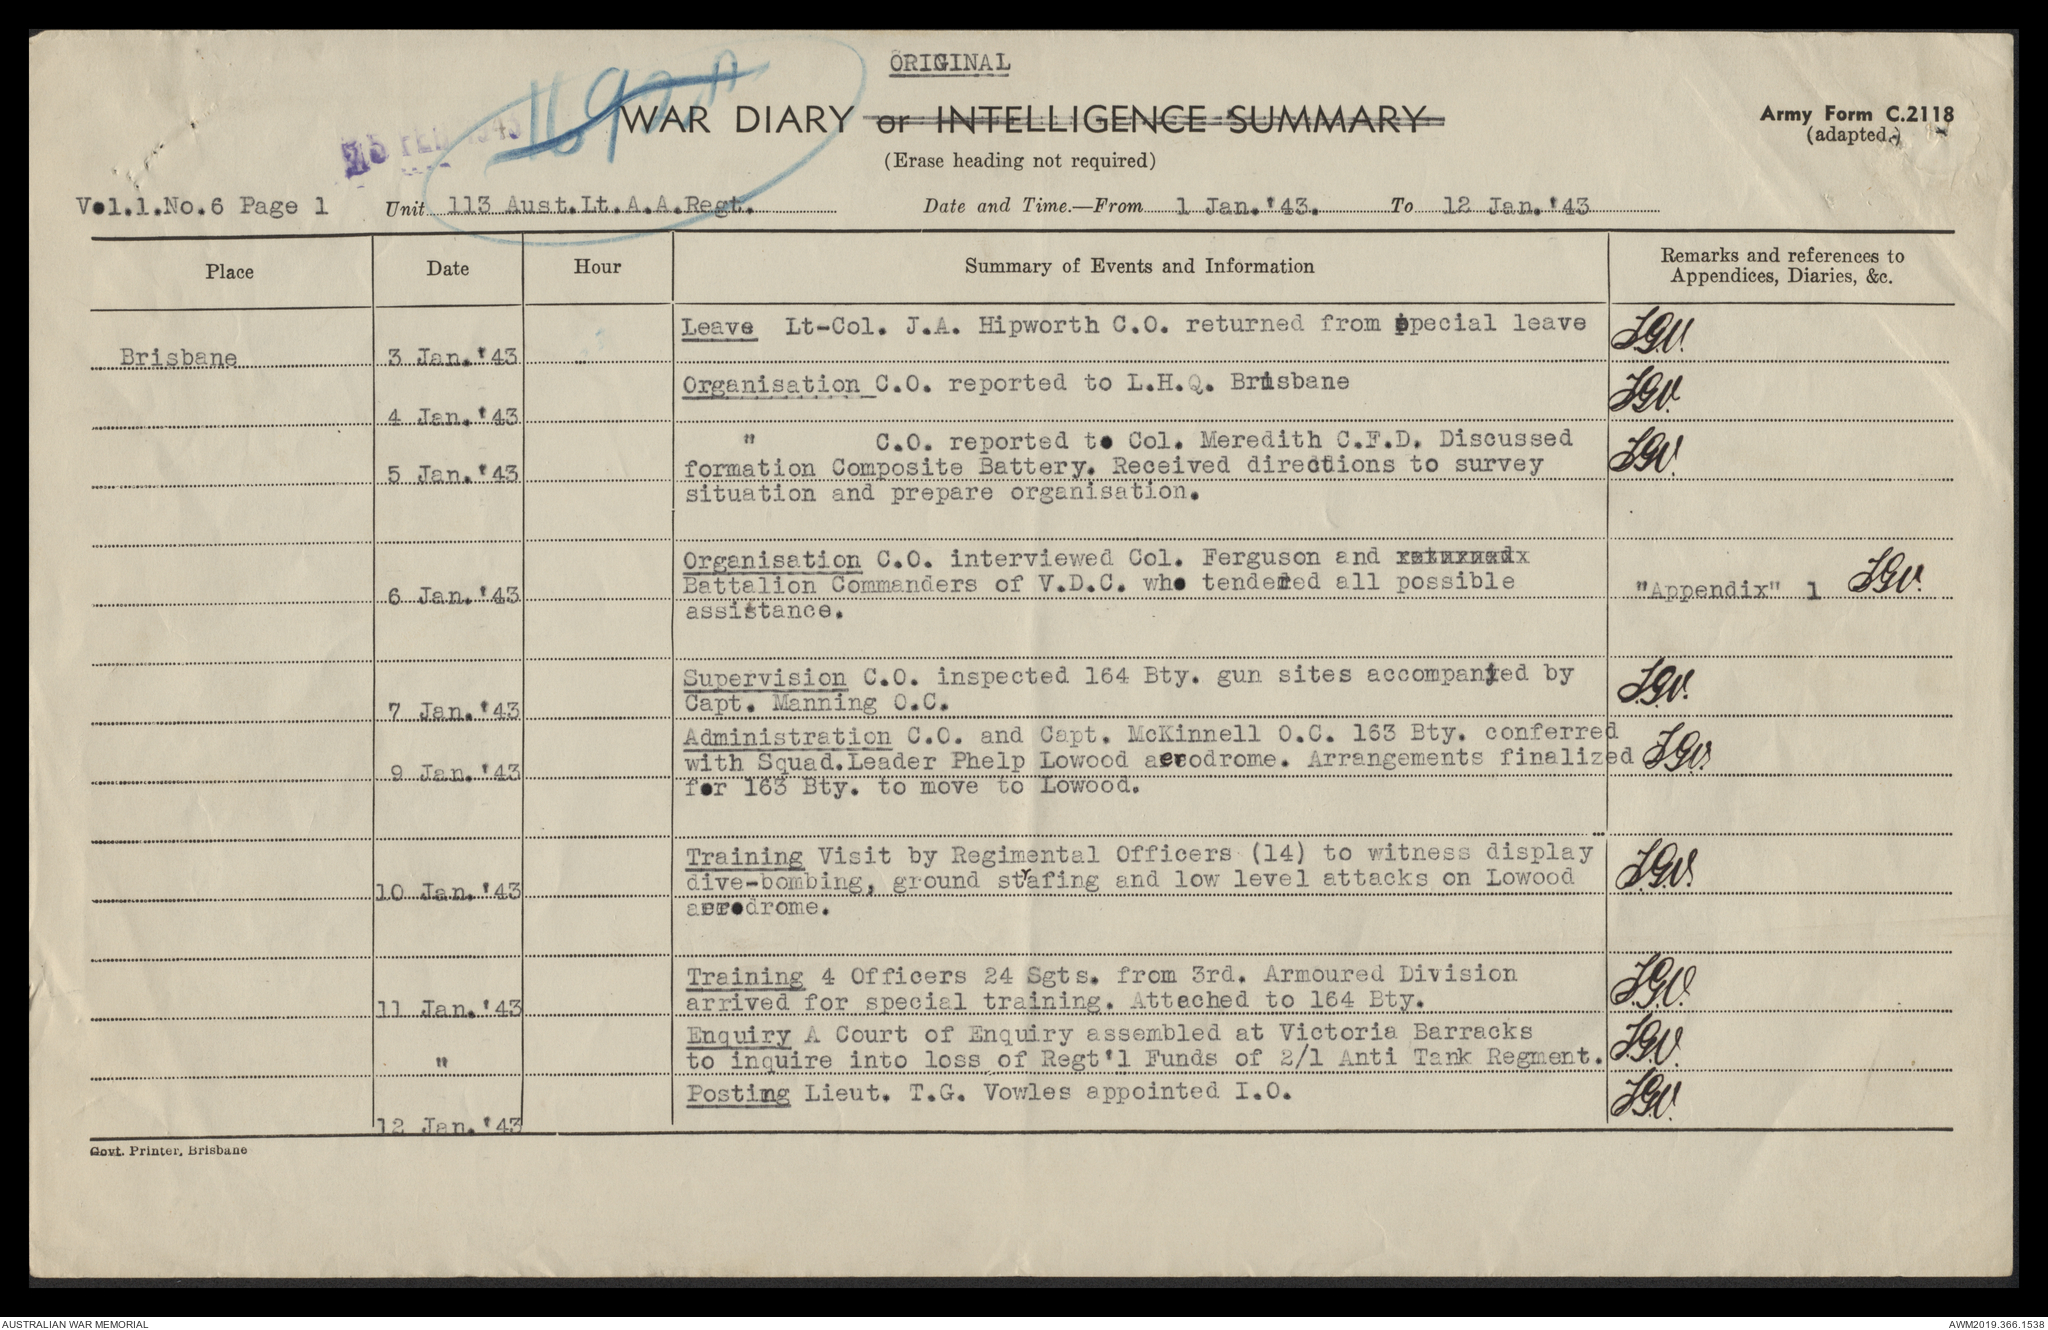 ORIGINAL
WAR DIARY or INTELLIGENCE SUMMARY
(Erase heading not required)
Army Form C.2118
(adapted.)
FEB 1943
Vol.1.No.6 Page 1 Unit 113 Aust.Lt.A.A.Regt. Date and Time.—From 1 Jan.'43. To 12 Jan.'43
Place Date Hour Summary of Events and Information Remarks and references to
Appendices, Diaries, &c.
Leave Lt-Col. J.A. Hipworth C.O. returned from special leave T.G.V.
Brisbane 3 Jan.'43
Organisation C.O. reported to L.H.Q. Brisbane T.G.V.
4 Jan.'43
" C.O. reported to Col. Meredith C.F.D. Discussed T.G.V.
5 Jan.'43 formation Composite Battery. Received directions to survey
situation and prepare organisation.
Organisation C.O. interviewed Col. Ferguson and returned
6 Jan.'43 Battalion Commanders of V.D.C. who tendered all possible "Appendix" 1 T.G.V.
assistance.
Supervision C.O. inspected 164 Bty. gun sites accompanied by T.G.V.
7 Jan.'43 Capt. Manning O.C.
Administration C.O. and Capt. McKinnell O.C. 163 Bty. conferred
9 Jan.'43 with Squad.Leader Phelp Lowood aerodrome. Arrangements finalized T.G.V.
for 163 Bty. to move to Lowood.
Training Visit by Regimental Officers (14) to witness display T.G.V.
10 Jan.'43 dive-bombing, ground strafing and low level attacks on Lowood
aerodrome.
Training 4 Officers 24 Sgts. from 3rd. Armoured Division T.G.V.
11 Jan.'43 arrived for special training. Atteched to 164 Bty.
Enquiry A Court of Enquiry assembled at Victoria Barracks T.G.V.
" to inquire into loss of Regt'l Funds of 2/1 Anti Tank Regment.
Posting Lieut. T.G. Vowles appointed I.O. T.G.V.
12 Jan.'43
Govt. Printer, Brisbane
AUSTRALIAN WAR MEMORIAL AWM2019.366.1538